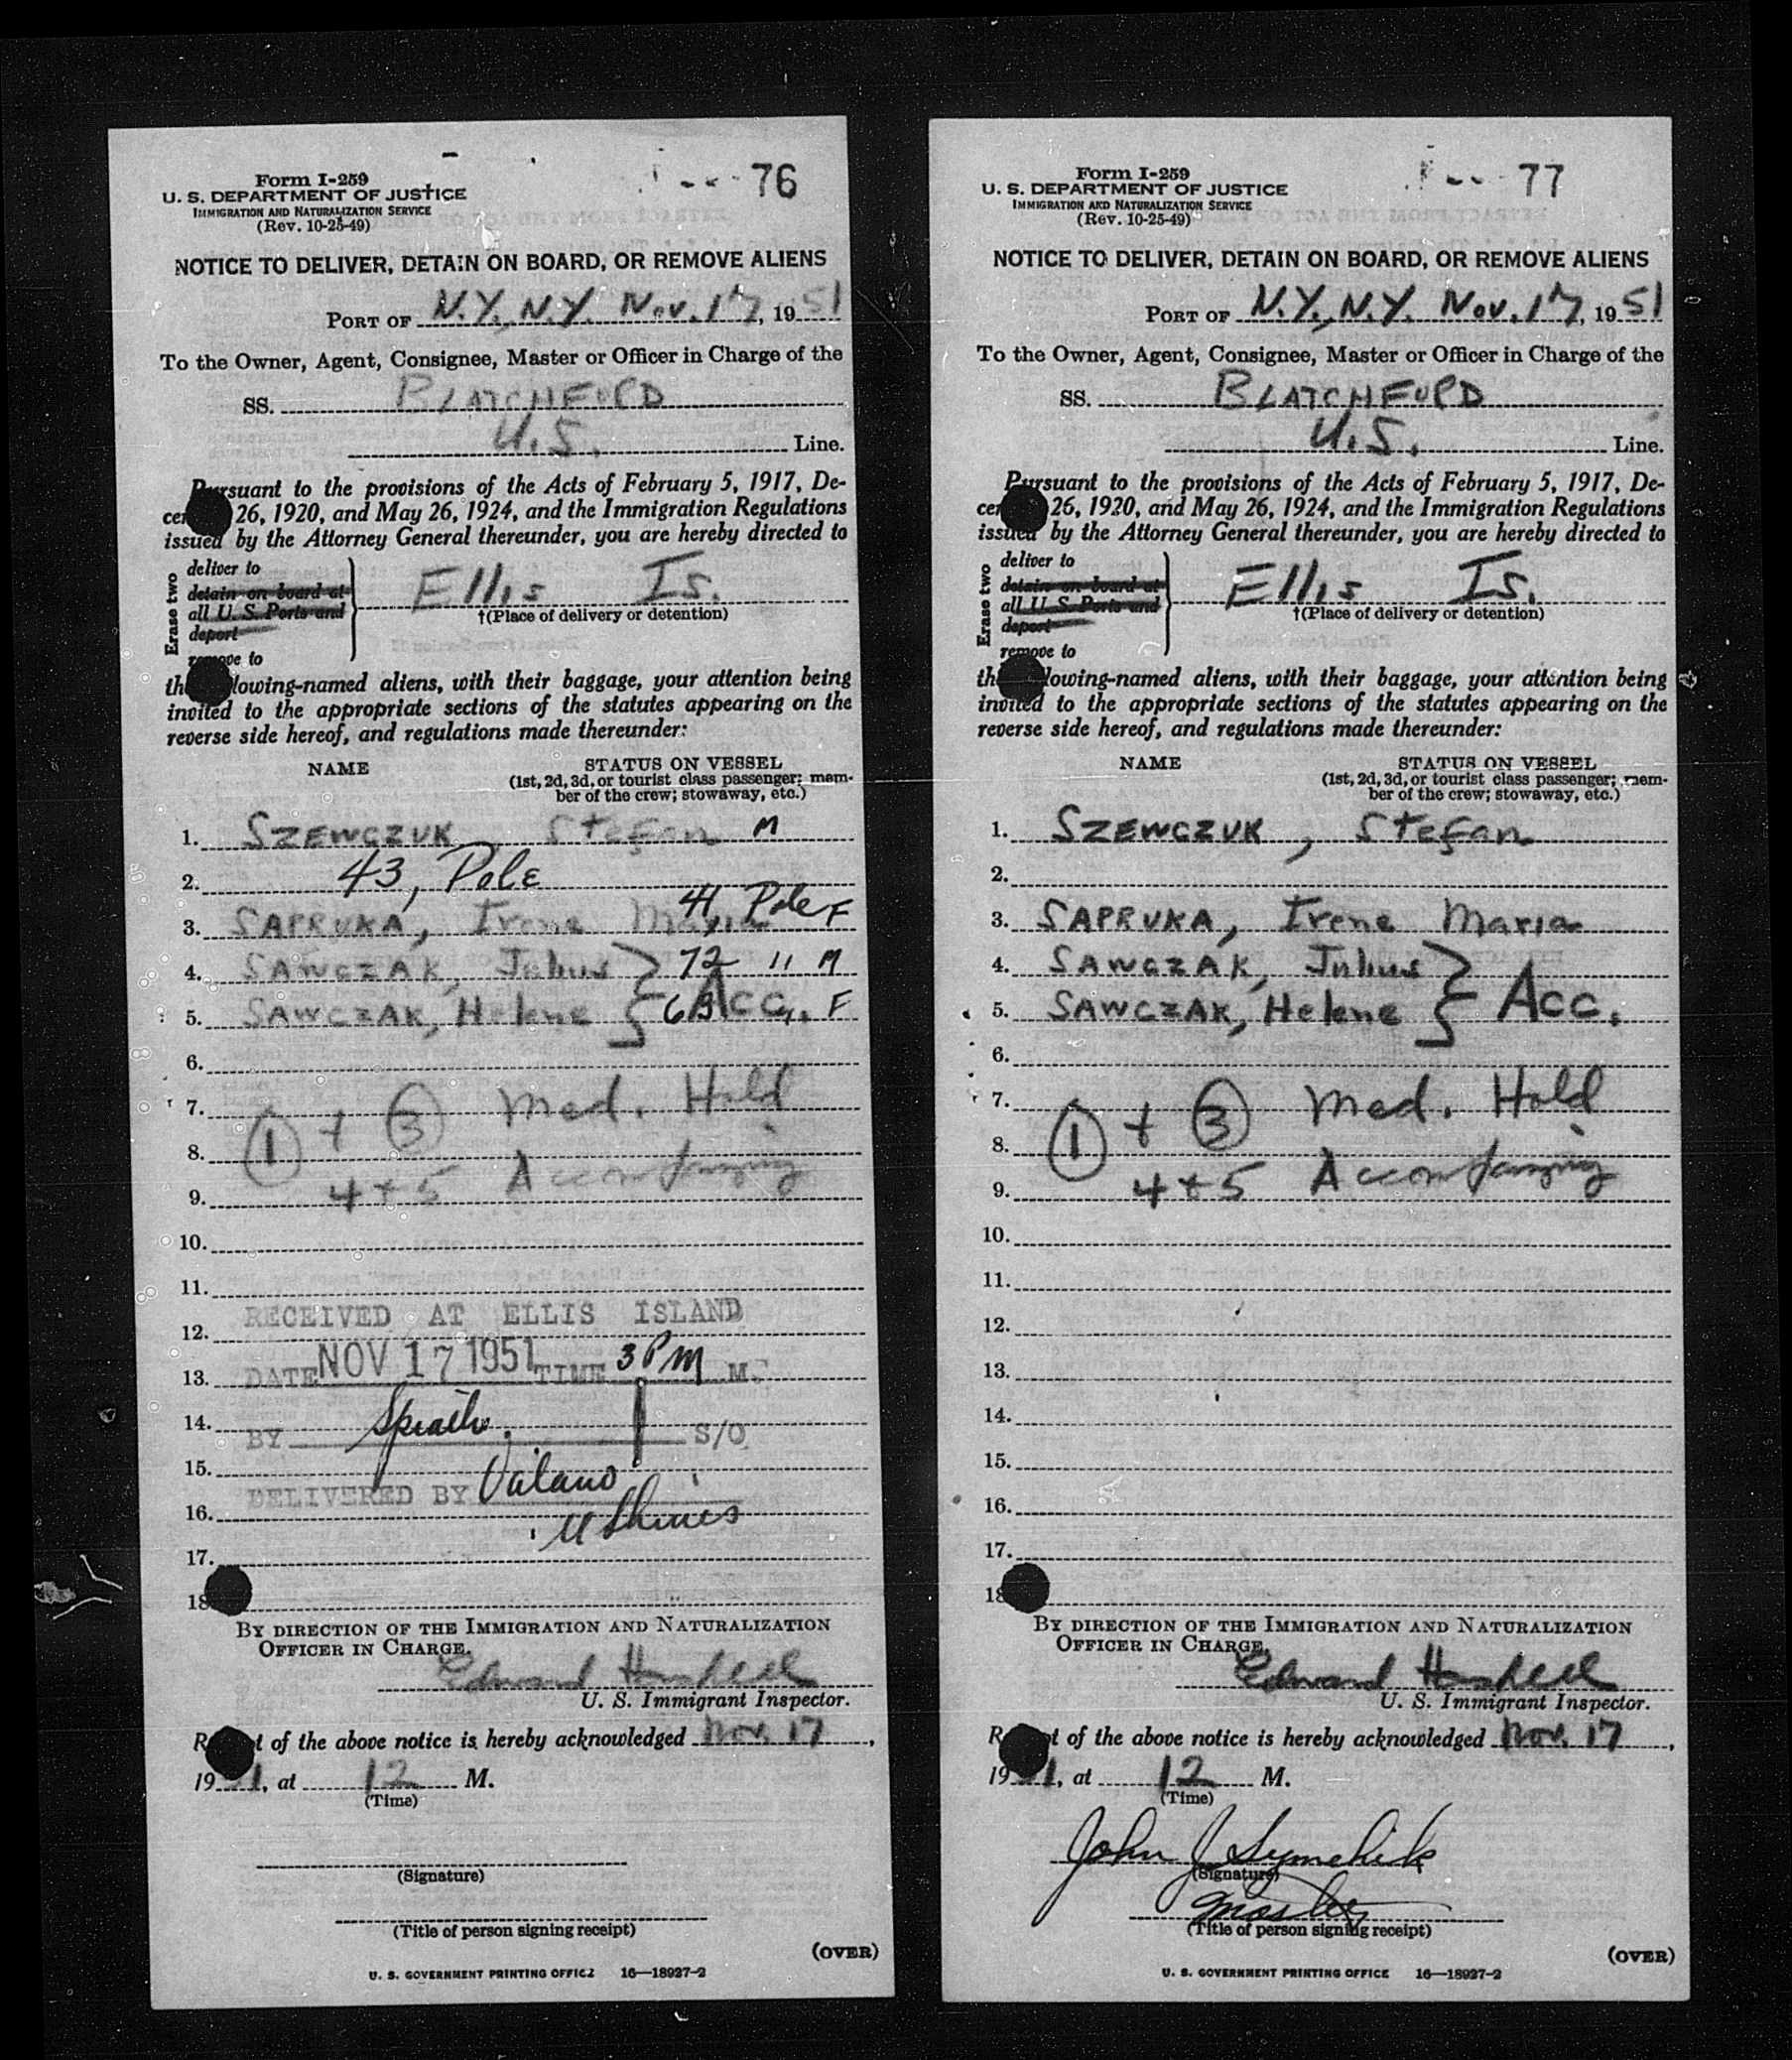 Form I-259
U. S. DEPARTMENT OF JUSTICE
IMMIGRATION AND NATURALIZATION SERVICE
(Rev. 10-25-49)
76
NOTICE TO DELIVER, DETAIN ON BOARD, OR REMOVE ALIENS
PORT OF N.Y., N.Y. Nov. 17, 1951
To the Owner, Agent, Consignee, Master or Officer in Charge of the
SS. BLATCHFORD
U.S. Line.
Pursuant to the provisions of the Acts of February 5, 1917, De-
cem 26, 1920, and May 26, 1924, and the Immigration Regulations
issued by the Attorney General thereunder, you are hereby directed to
Erase two
deliver to
detain on board at
all U. S. Ports and
deport
remove to
Ellis Is.
†(Place of delivery or detention)
the lowing-named aliens, with their baggage, your attention being
invited to the appropriate sections of the statutes appearing on the
reverse side hereof, and regulations made thereunder:
NAME STATUS ON VESSEL
(1st, 2d, 3d, or tourist class passenger; mem-
ber of the crew; stowaway, etc.)
1. SZEWCZUK Stefan M
2. 43, Pole
3. SAPRUKA, Irene Maria 41, Pole F
4. SAWCZAK, Julius 72 11 M
5. SAWCZAK, Helene Acc. F
6.
7. Med. Hold
8. 1 + 3
9. 4 + 5 Accompanying
10.
11.
RECEIVED AT ELLIS ISLAND
12.
13. DATE NOV 17 1951 TIME 3 PM M.
14.
BY S/O
15.
DELIVERED BY
16.
17.
18
BY DIRECTION OF THE IMMIGRATION AND NATURALIZATION
OFFICER IN CHARGE.
Edward
U. S. Immigrant Inspector.
R t of the above notice is hereby acknowledged Nov. 17,
1951, at 12 M.
(Time)
(Signature)
(Title of person signing receipt)
(OVER)
U. S. GOVERNMENT PRINTING OFFICE 16—18927-2
Form I-259
U. S. DEPARTMENT OF JUSTICE
IMMIGRATION AND NATURALIZATION SERVICE
(Rev. 10-25-49)
77
NOTICE TO DELIVER, DETAIN ON BOARD, OR REMOVE ALIENS
PORT OF N.Y., N.Y. Nov. 17, 1951
To the Owner, Agent, Consignee, Master or Officer in Charge of the
SS. BLATCHFORD
U.S. Line.
Pursuant to the provisions of the Acts of February 5, 1917, De-
cem 26, 1920, and May 26, 1924, and the Immigration Regulations
issued by the Attorney General thereunder, you are hereby directed to
Erase two
deliver to
detain on board at
all U. S. Ports and
deport
remove to
Ellis Is.
†(Place of delivery or detention)
the lowing-named aliens, with their baggage, your attention being
invited to the appropriate sections of the statutes appearing on the
reverse side hereof, and regulations made thereunder:
NAME STATUS ON VESSEL
(1st, 2d, 3d, or tourist class passenger; mem-
ber of the crew; stowaway, etc.)
1. SZEWCZUK, Stefan
2.
3. SAPRUKA, Irene Maria
4. SAWCZAK, Julius
5. SAWCZAK, Helene Acc.
6.
7. Med. Hold
8. 1 + 3
9. 4 + 5 Accompanying
10.
11.
12.
13.
14.
15.
16.
17.
18
BY DIRECTION OF THE IMMIGRATION AND NATURALIZATION
OFFICER IN CHARGE.
Edward
U. S. Immigrant Inspector.
R t of the above notice is hereby acknowledged Nov. 17,
1951, at 12 M.
(Time)
John J Symchik
(Signature)
Master
(Title of person signing receipt)
(OVER)
U. S. GOVERNMENT PRINTING OFFICE 16—18927-2